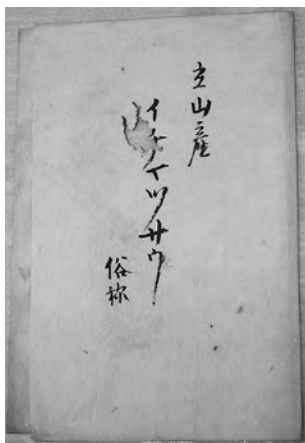 立山産
イチイツサウ
俗称